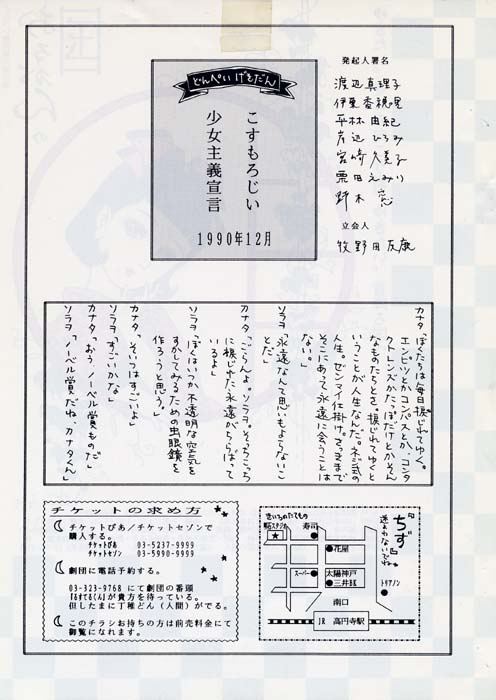 どんぺい げきだん
こすもろじい
少女主義宣言
1990年12月
発起人署名
渡辺真理子
平林由紀
岸辺ひろみ
宮崎久美子
栗田えみり
野木
立会人
牧野田友康
カナタ「ぼくたちは毎日捩じれてゆく。
エンピツとかコンパスとか、コンタ
クトレンズかたっぽだけとかそん
なものたちとさ。捩じれてゆくと
いうことが人生なんだ。ネジ式の
人生。ゼンマイ仕掛け。さっきまで
そこにあって永遠に会うことは
ない。」
ソラヲ「永遠なんて思いもよらないこ
とだ」
カナタ「ごらんよ。ソラヲ。そっちこっち
に捩じれた永遠がちらばって
いるよ」
ソラヲ「ぼくはいつか不透明な空気を
すかしてみるための虫眼鏡を
作ろうと思う。」
カナタ「そいつはすごいよ」
ソラヲ「すごいかな」
カナタ「おう、ノーベル賞ものだ」
ソラヲ「ノーベル賞だね、カナタくん」
チケットの求め方
チケットぴあ/チケットセゾンで
購入する。
チケットぴあ 03-5237-9999
チケットセゾン 03-5990-9999
劇団に電話予約する。
03-323-9768 にて劇団の番頭
が貴方を待っている。
但したまに丁稚どん(人間)がでる。
このチラシお持ちの方は前売料金にて
御覧になれます。
ちず
迷わないでね
きいろのたてもの
スタジオ
寿司
花屋
スーパー
太陽神戸
三井BK
トリアノン
南口
JR 高円寺駅